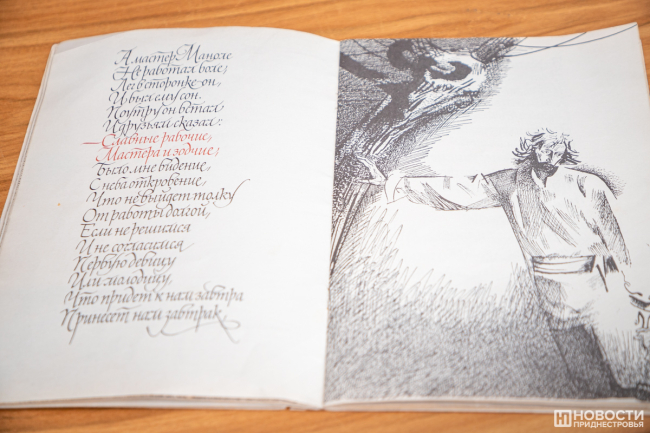 А мастер Маноле
Не работал боле;
Лёг в сторонке он,
И был ему сон.
Поутру он встал
И друзьям сказал:
— Славные рабочие,
Мастера и зодчие,
Было мне видение,
С неба откровение,
Что не выйдет толку
От работы долгой,
Если не решимся
И не согласимся
Первую девицу
Или молодицу,
Что придет к нам завтра
Принесет нам завтрак,
НОВОСТИ
ПРИДНЕСТРОВЬЯ